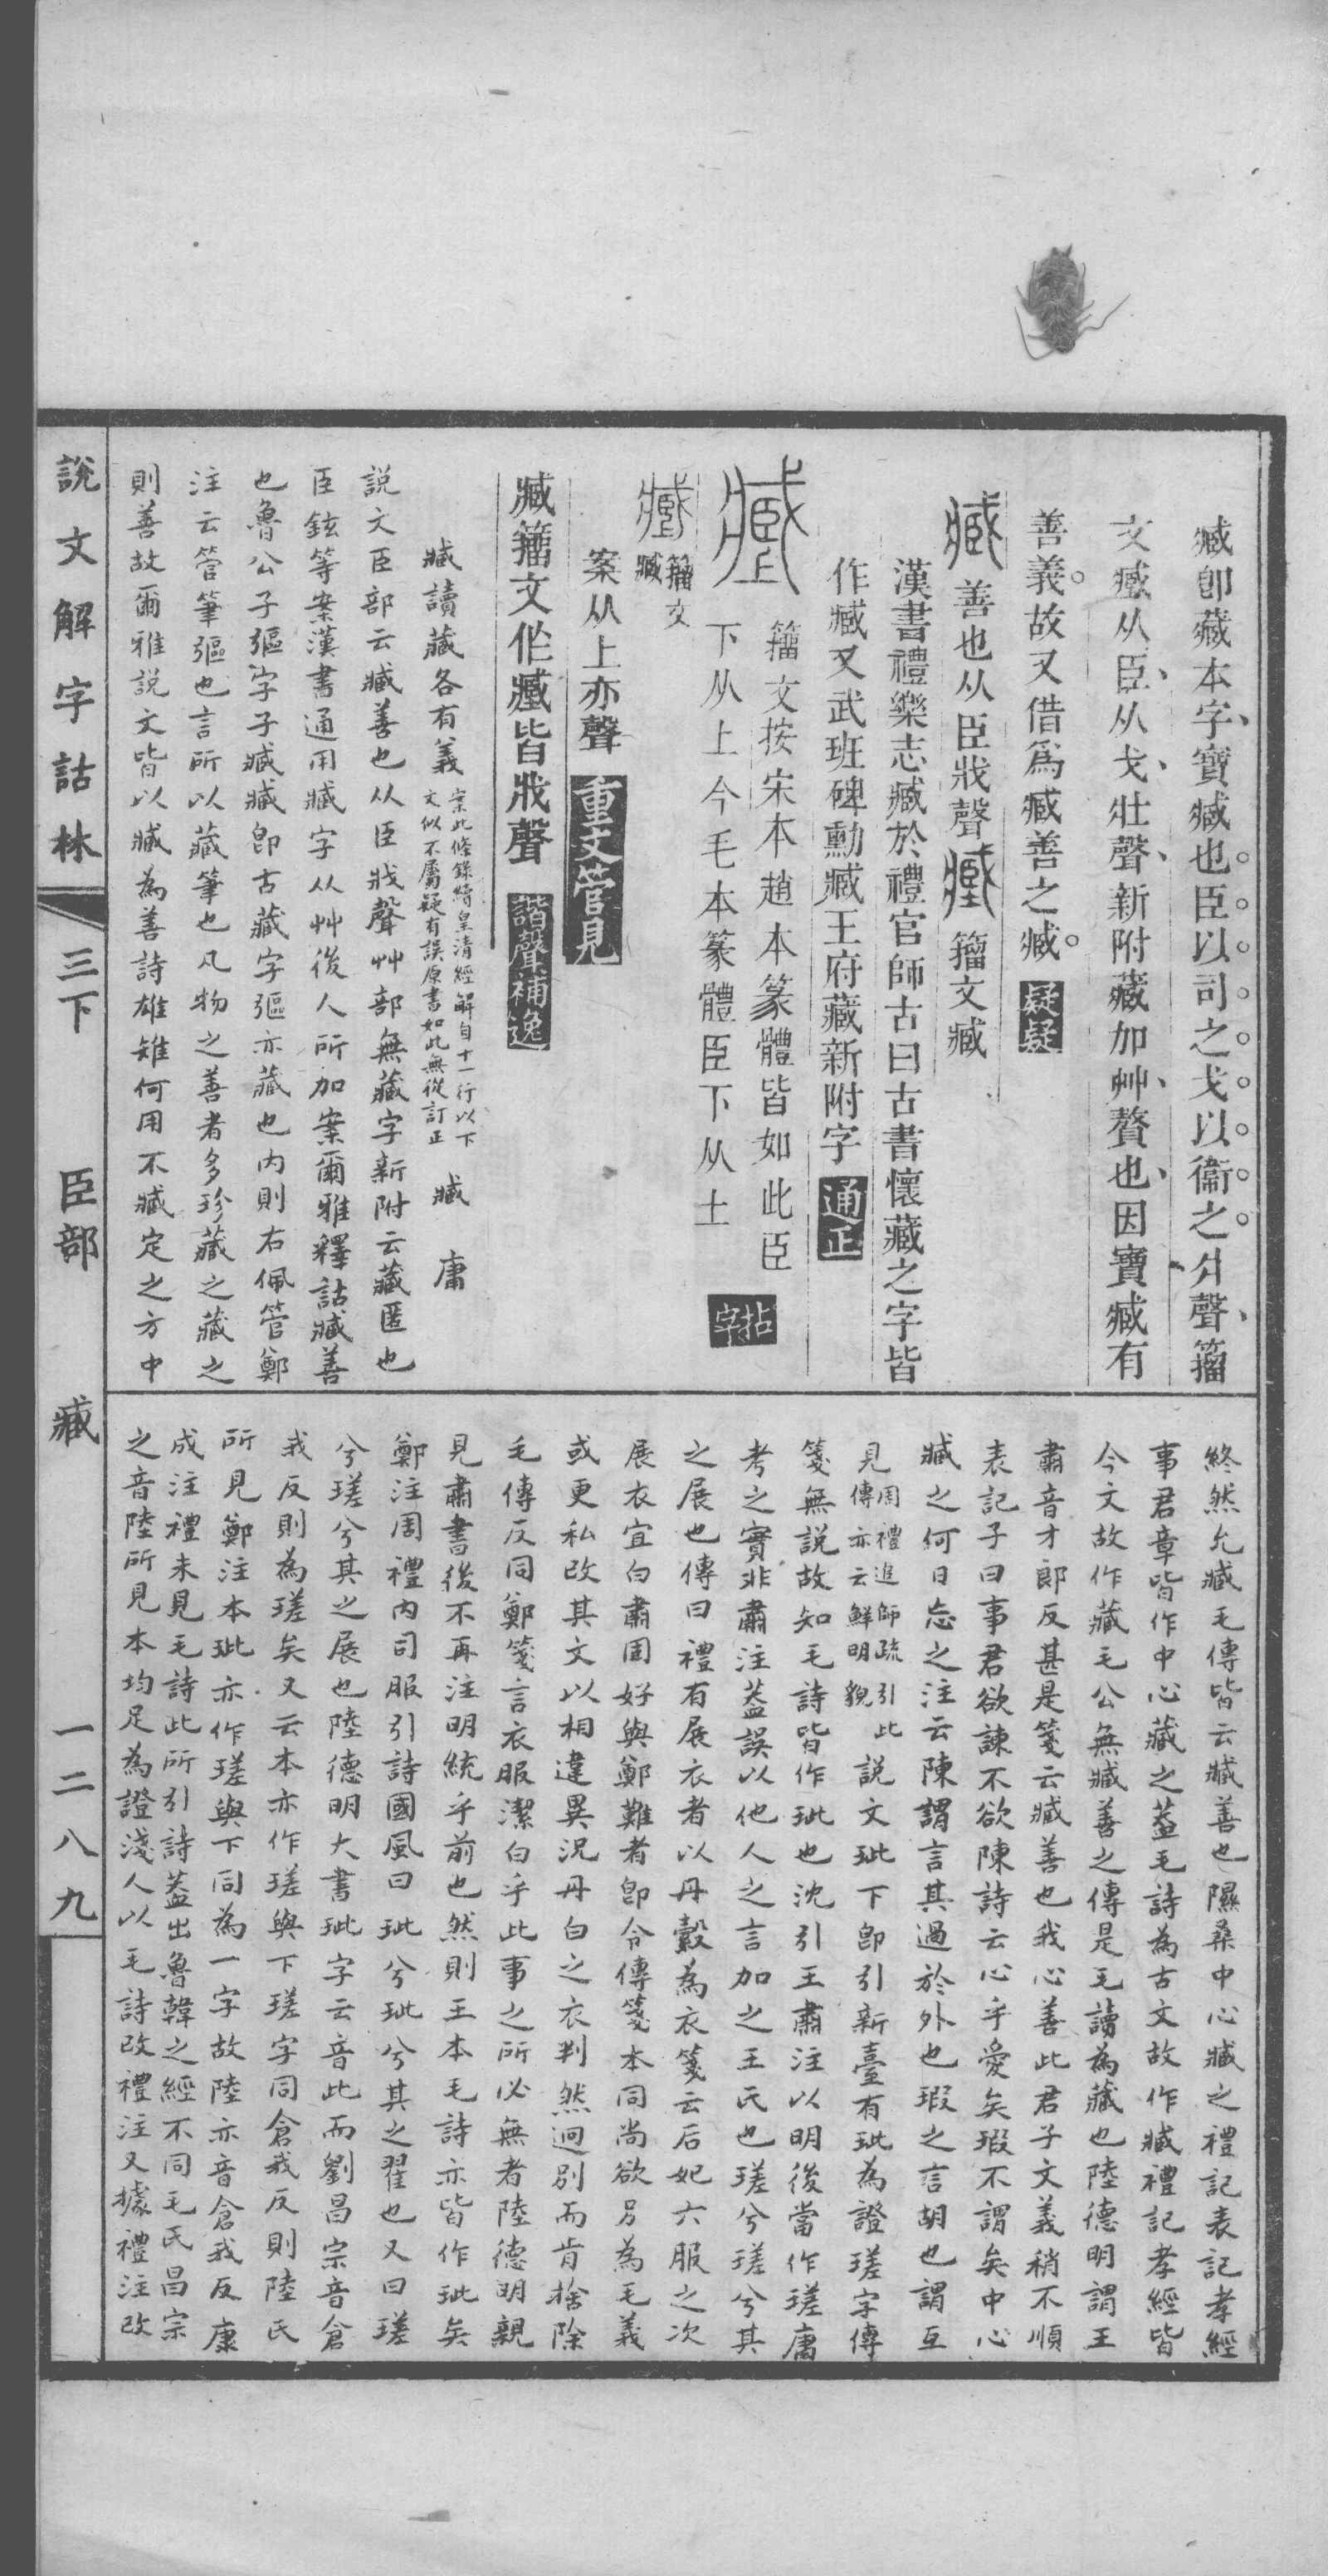 臧卽藏本字寶臧也臣以司之戈以衞之爿聲籀
文臧从臣从戈壯聲新附藏加艸贅也因寶臧有
善義故又借爲臧善之臧 疑疑
臧善也从臣戕聲 籀文臧
漢書禮樂志臧於禮官師古曰古書懷藏之字皆
作臧又武班碑勳臧王府藏新附字 通正
籀文按宋本趙本篆體皆如此臣
下从上今毛本篆體臣下从土 拈字
籀文臧
案从上亦聲 重文管見
臧籀文作皆戕聲 諧聲補逸
臧讀藏各有義 案此條錄綺皇清經解自十一行以下文似不屬疑有誤原書如此無從訂正 臧庸
說文臣部云臧善也从臣戕聲艸部無藏字新附云藏匿也
臣鉉等案漢書通用臧字从艸後人所加案爾雅釋詁臧善
也魯公子彄字子臧臧卽古藏字彄亦藏也內則右佩管鄭
注云管筆彄也言所以藏筆也凡物之善者多珍藏之藏之
則善故爾雅說文皆以臧為善詩雄雉何用不臧定之方中
終然允臧毛傳皆云臧善也隰桑中心臧之禮記表記孝經
事君章皆作中心藏之葢毛詩為古文故作臧禮記孝經皆
今文故作藏毛公無臧善之傳是毛讀為藏也陸德明謂王
肅音才郎反甚是箋云臧善也我心善此君子文義稍不順
表記子曰事君欲諫不欲陳詩云心乎愛矣瑕不謂矣中心
臧之何日忘之注云陳謂言其過於外也瑕之言胡也謂互
見周禮追師疏引此傳亦云鮮明貌說文玼下卽引新臺有玼為證瑳字傳
箋無說故知毛詩皆作玼也沈引王肅注以明後當作瑳庸
考之實非肅注葢誤以他人之言加之王氏也瑳兮瑳兮其
之展也傳曰禮有展衣者以丹縠為衣箋云后妃六服之次
展衣宜白肅固好與鄭難者卽令傳箋本同尚欲另為毛義
或更私改其文以相違異況丹白之衣判然迥別而肯捨除
毛傳反同鄭箋言衣服潔白乎此事之所必無者陸德明親
見肅書後不再注明統乎前也然則王本毛詩亦皆作玼矣
鄭注周禮內司服引詩國風曰玼兮玼兮其之翟也又曰瑳
兮瑳兮其之展也陸德明大書玼字云音此而劉昌宗音倉
我反則為瑳矣又云本亦作瑳與下瑳字同倉我反則陸氏
所見鄭注本玼亦作瑳與下同為一字故陸亦音倉我反康
成注禮未見毛詩此所引詩葢出魯韓之經不同毛氏昌宗
之音陸所見本均足為證淺人以毛詩改禮注又據禮注改
說文解字詁林 三下 臣部 臧 一二八九